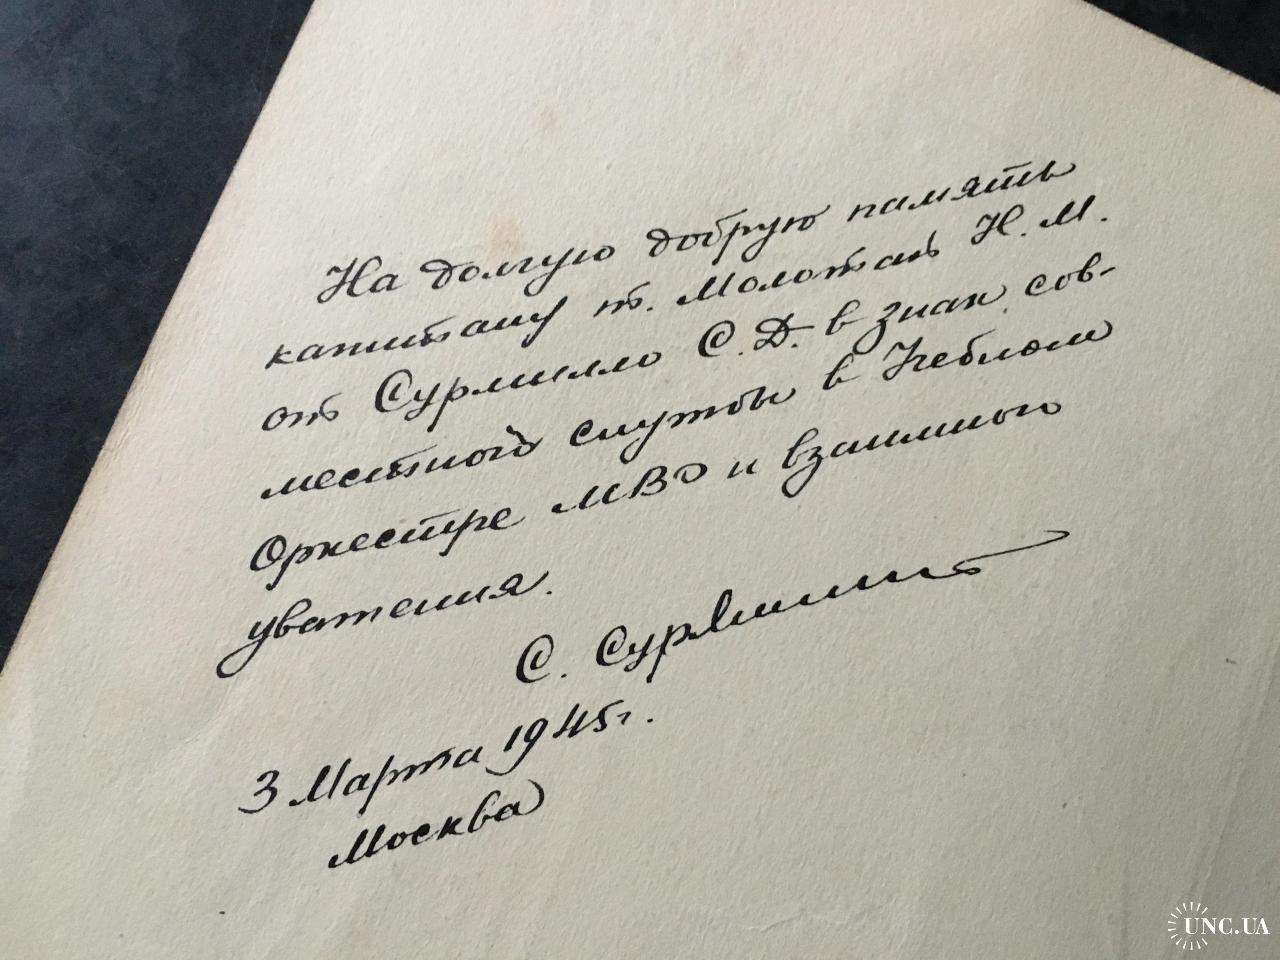 На долгую добрую память
капитану т. Молотай Н. М.
от Сурмилло С. Д. в знак сов-
местной службы в
Оркестре МВД и взаимного
уважения.
С. Сурмилло
3 Марта 1945 г.
Москва
UNC.UA